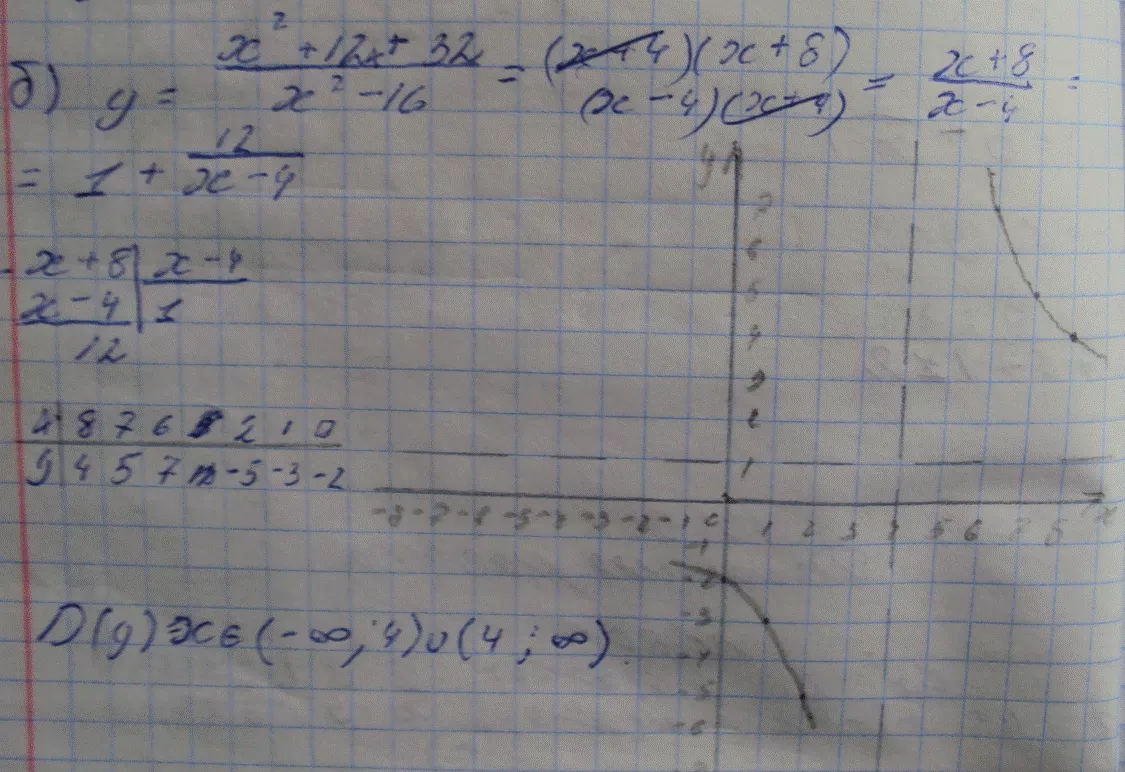 б) y = x² + 12x + 32 / x² - 16 = (x+4)(x+8) / (x-4)(x+4) = x+8 / x-4 =
= 1 + 12 / x-4
x + 8 | x - 4
x - 4 | 1
12
8 7 6 2 1 0
y 4 5 7 -5 -3 -2
D(y) x∈(-∞; 4)∪(4; ∞)
y
7
6
5
4
3
2
1
-8 -7 -6 -5 -4 -3 -2 -1 0 1 2 3 4 5 6 7 8 x
-1
-2
-3
-4
-5
-6